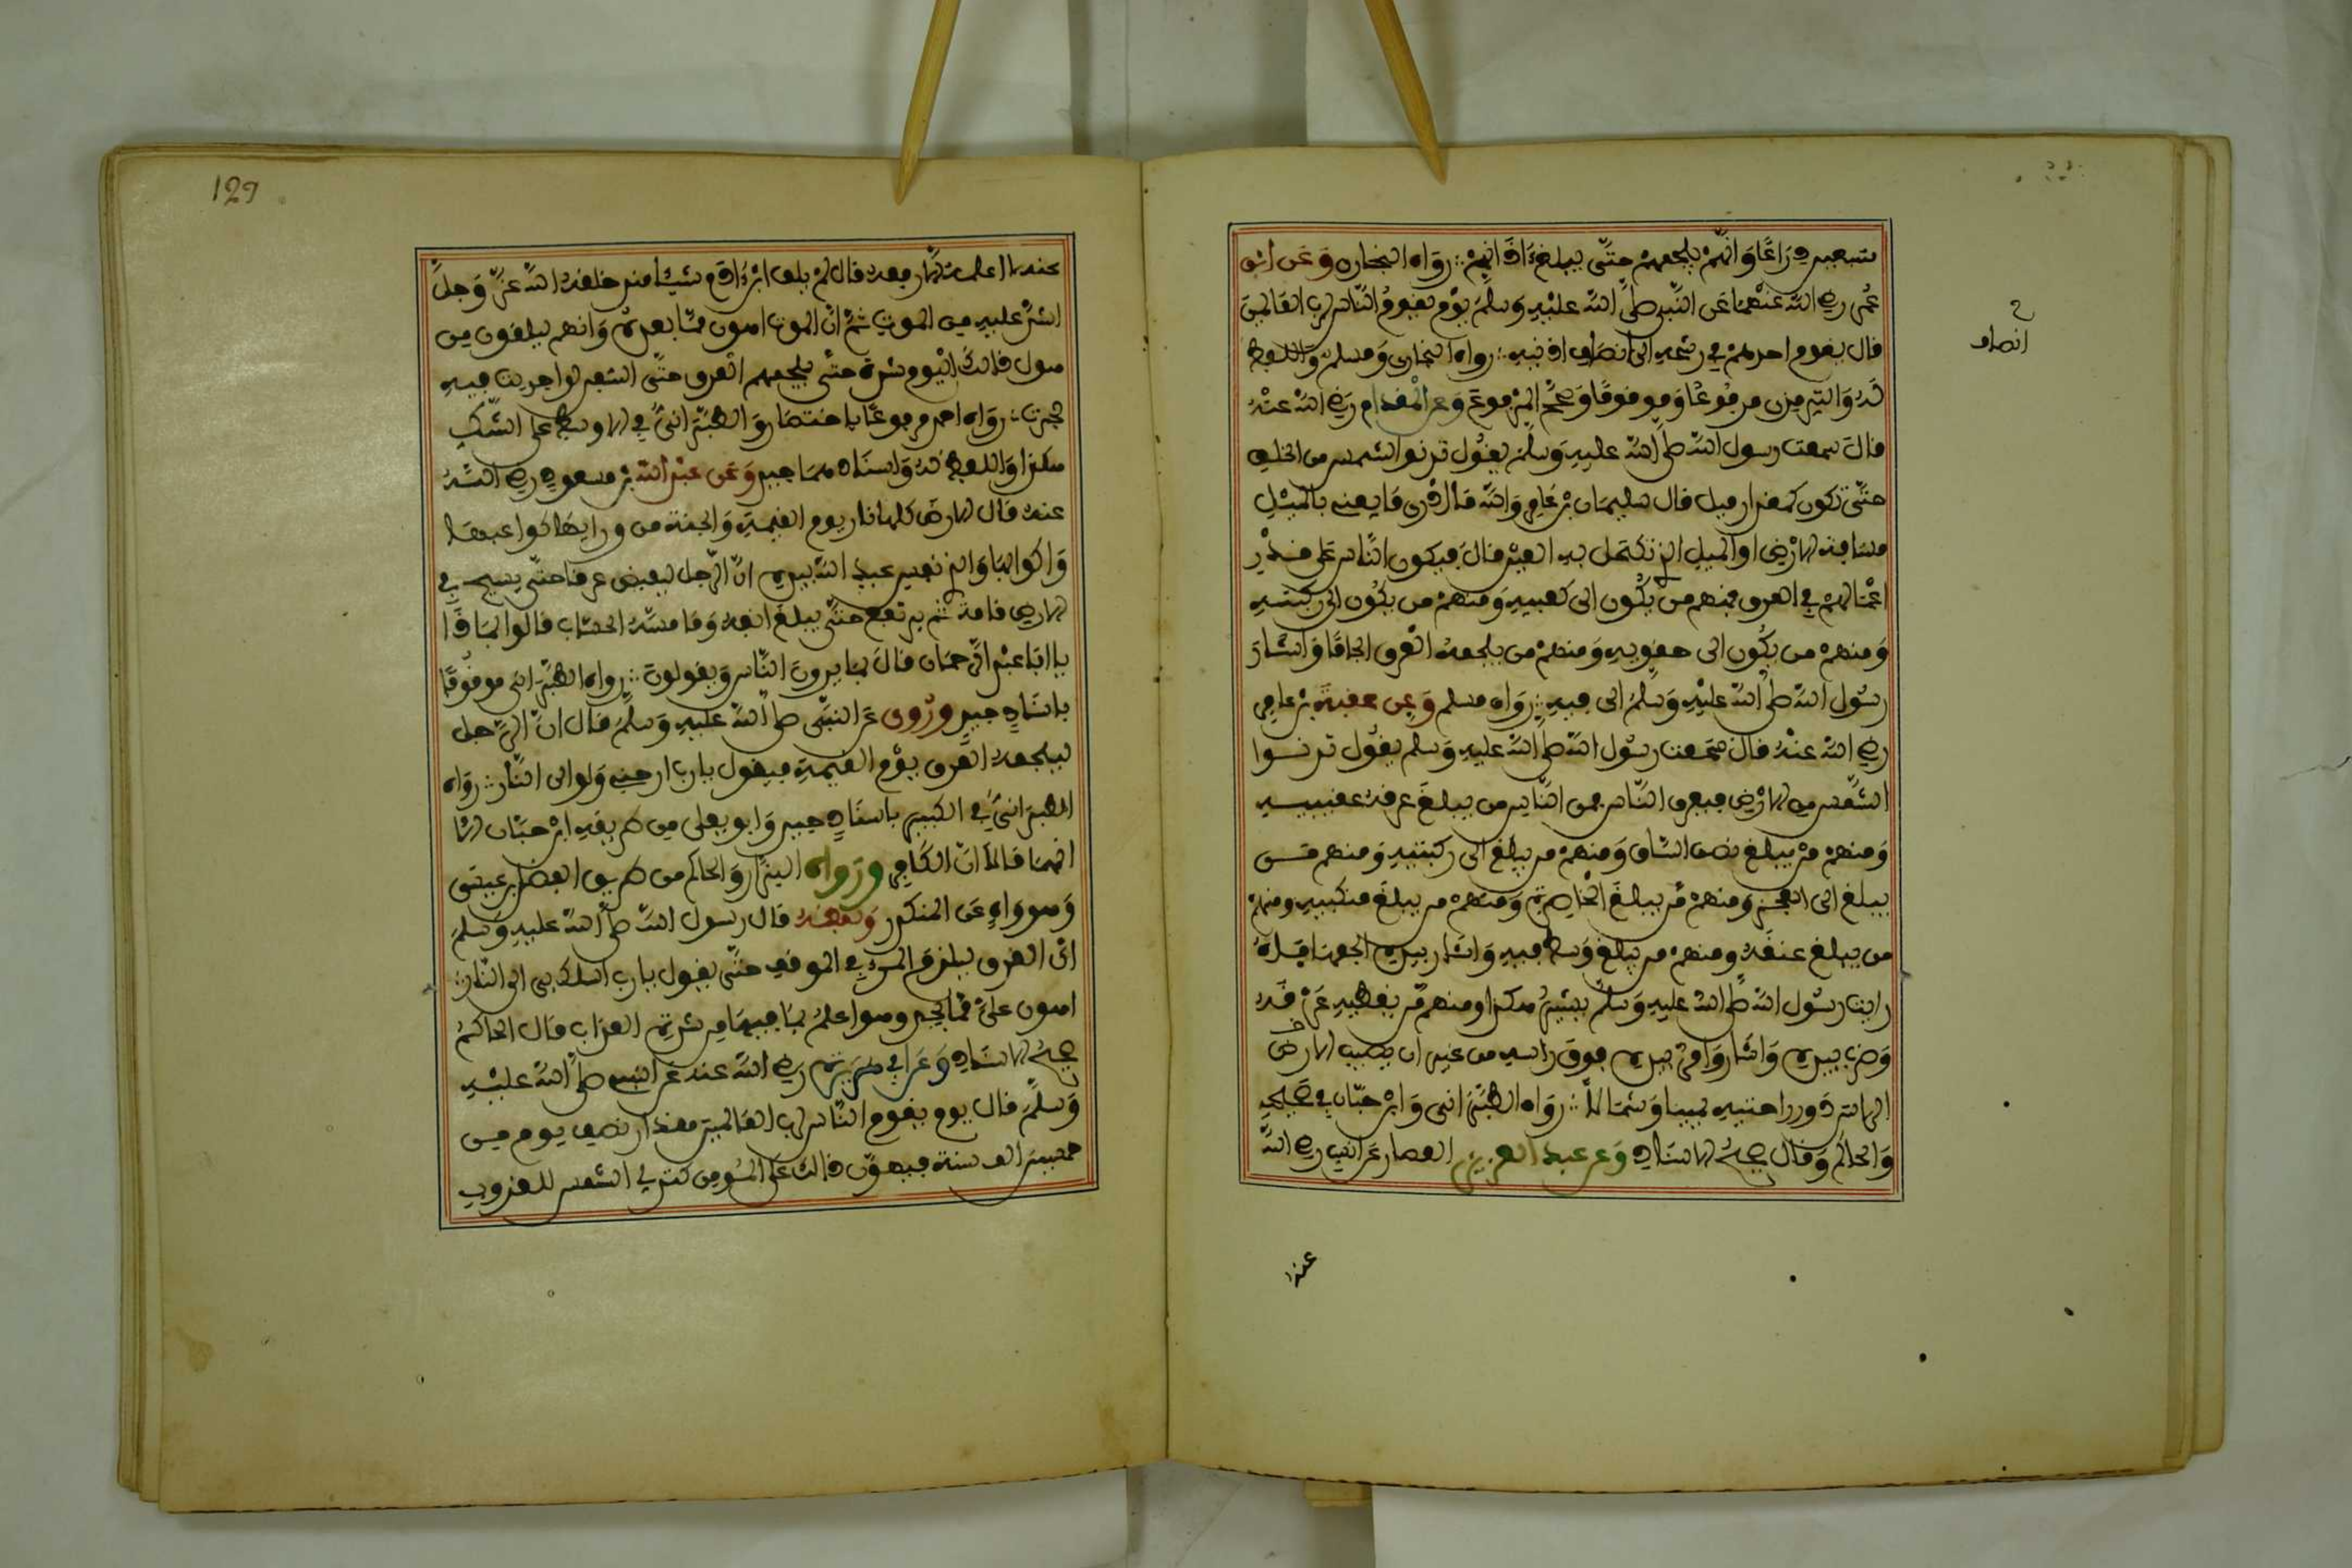 سبعين ذراعا وانه يلجمهم حتى يبلغ ءاذانهم : رواه البخاري وعن ابن
عمر رضي الله عنهما عن النبي صلى الله عليه وسلم يوم يقوم الناس لرب العالمين
قال يقوم احدهم في رشحه الى انصاف اذنيه : رواه البخاري ومسلم واللفظ
له والترمذي مرفوعا وموقوفا وصحح المرفوع وعن المقدام رضي الله عنه
قال سمعت رسول الله صلى الله عليه وسلم يقول تدنو الشمس من الخلق
حتى تكون كمقدار ميل قال سليمان بن عامر والله ما ادري ما يعني بالميل
مسافة الارض او الميل الذي تكتحل به العين قال فيكون الناس على قدر
اعمالهم في العرق فمنهم من يكون الى كعبيه ومنهم من يكون الى ركبتيه
ومنهم من يكون الى حقويه ومنهم من يلجمه العرق الجاما واشار
رسول الله صلى الله عليه وسلم الى فيه : رواه مسلم وعن عقبة بن عامر
رضي الله عنه قال سمعت رسول الله صلى الله عليه وسلم يقول تدنوا
الشمس من الارض فيعرق الناس فمن الناس من يبلغ عرقه عقبيه
ومنهم من يبلغ نصف الساق ومنهم من يبلغ الى ركبتيه ومنهم من
يبلغ الى العجز ومنهم من يبلغ الخاصرة ومنهم من يبلغ منكبيه ومنهم
من يبلغ عنقه ومنهم من يبلغ وسط فيه واشار بيده الجمها فاه
رايت رسول الله صلى الله عليه وسلم يشير هكذا ومنهم من يغطيه عرقه
وضرب بيده واشار وامر بيده فوق راسه من غير ان يصيب الارض
الراس دور راحتيه يمينا وشمالا : رواه الطبراني وابن حبان في صحيحه
والحاكم وقال صحيح الاسناد وعن عبد العزيز العطار عن انس رضي الله
عنه
انصاف
129
عنه لا اعلمه الا رفعه قال لم يلق ابن ءادم شيئا منذ خلقه الله عز وجل
اشد عليه من الموت ثم ان الموت اهون مما بعده وانهم ليلقون من
هول ذلك اليوم شدة حتى يلجمهم العرق حتى السفن لو اجريت فيه
لجرت : رواه احمد مرفوعا باختصار والطبراني في الاوسط على الشك
هكذا واللفظ له واسنادهما جيد وعن عبد الله بن مسعود رضي الله
عنه قال الارض كلها نار يوم القيمة والجنة من ورايها كواعبها
واكوابها والذي نفس عبد الله بيده ان الرجل ليفيض عرقا حتى يسيح في
الارض قامة ثم يرتفع حتى يبلغ انفه وما مسه الحساب قالوا مم ذا
يا ابا عبد الرحمان قال مما يرون الناس ويقولون : رواه الطبراني موقوفا
باسناد جيد وروى عن النبي صلى الله عليه وسلم قال ان الرجل
ليلجمه العرق يوم القيمة فيقول يا رب ارحني ولو الى النار : رواه
الطبراني في الكبير باسناد جيد وابو يعلى من طريقه ابن حبان الا
انهما قالا ان الكافر ورواه البزار والحاكم من طريق الفضل بن عيسى
وهو واه عن المنكدر ولفظه قال رسول الله صلى الله عليه وسلم
ان العرق ليلزم المرء في الموقف حتى يقول يا رب ارسالك بي الى النار
اهون علي مما اجد وهو اعلم بما فيها من شدة العذاب قال الحاكم
صحيح الاسناد وعن ابي هريرة رضي الله عنه عن النبي صلى الله عليه
وسلم قال يوم يقوم الناس لرب العالمين مقدار نصف يوم من
خمسين الف سنة فيهون ذلك على المؤمن كتدلي الشمس للغروب